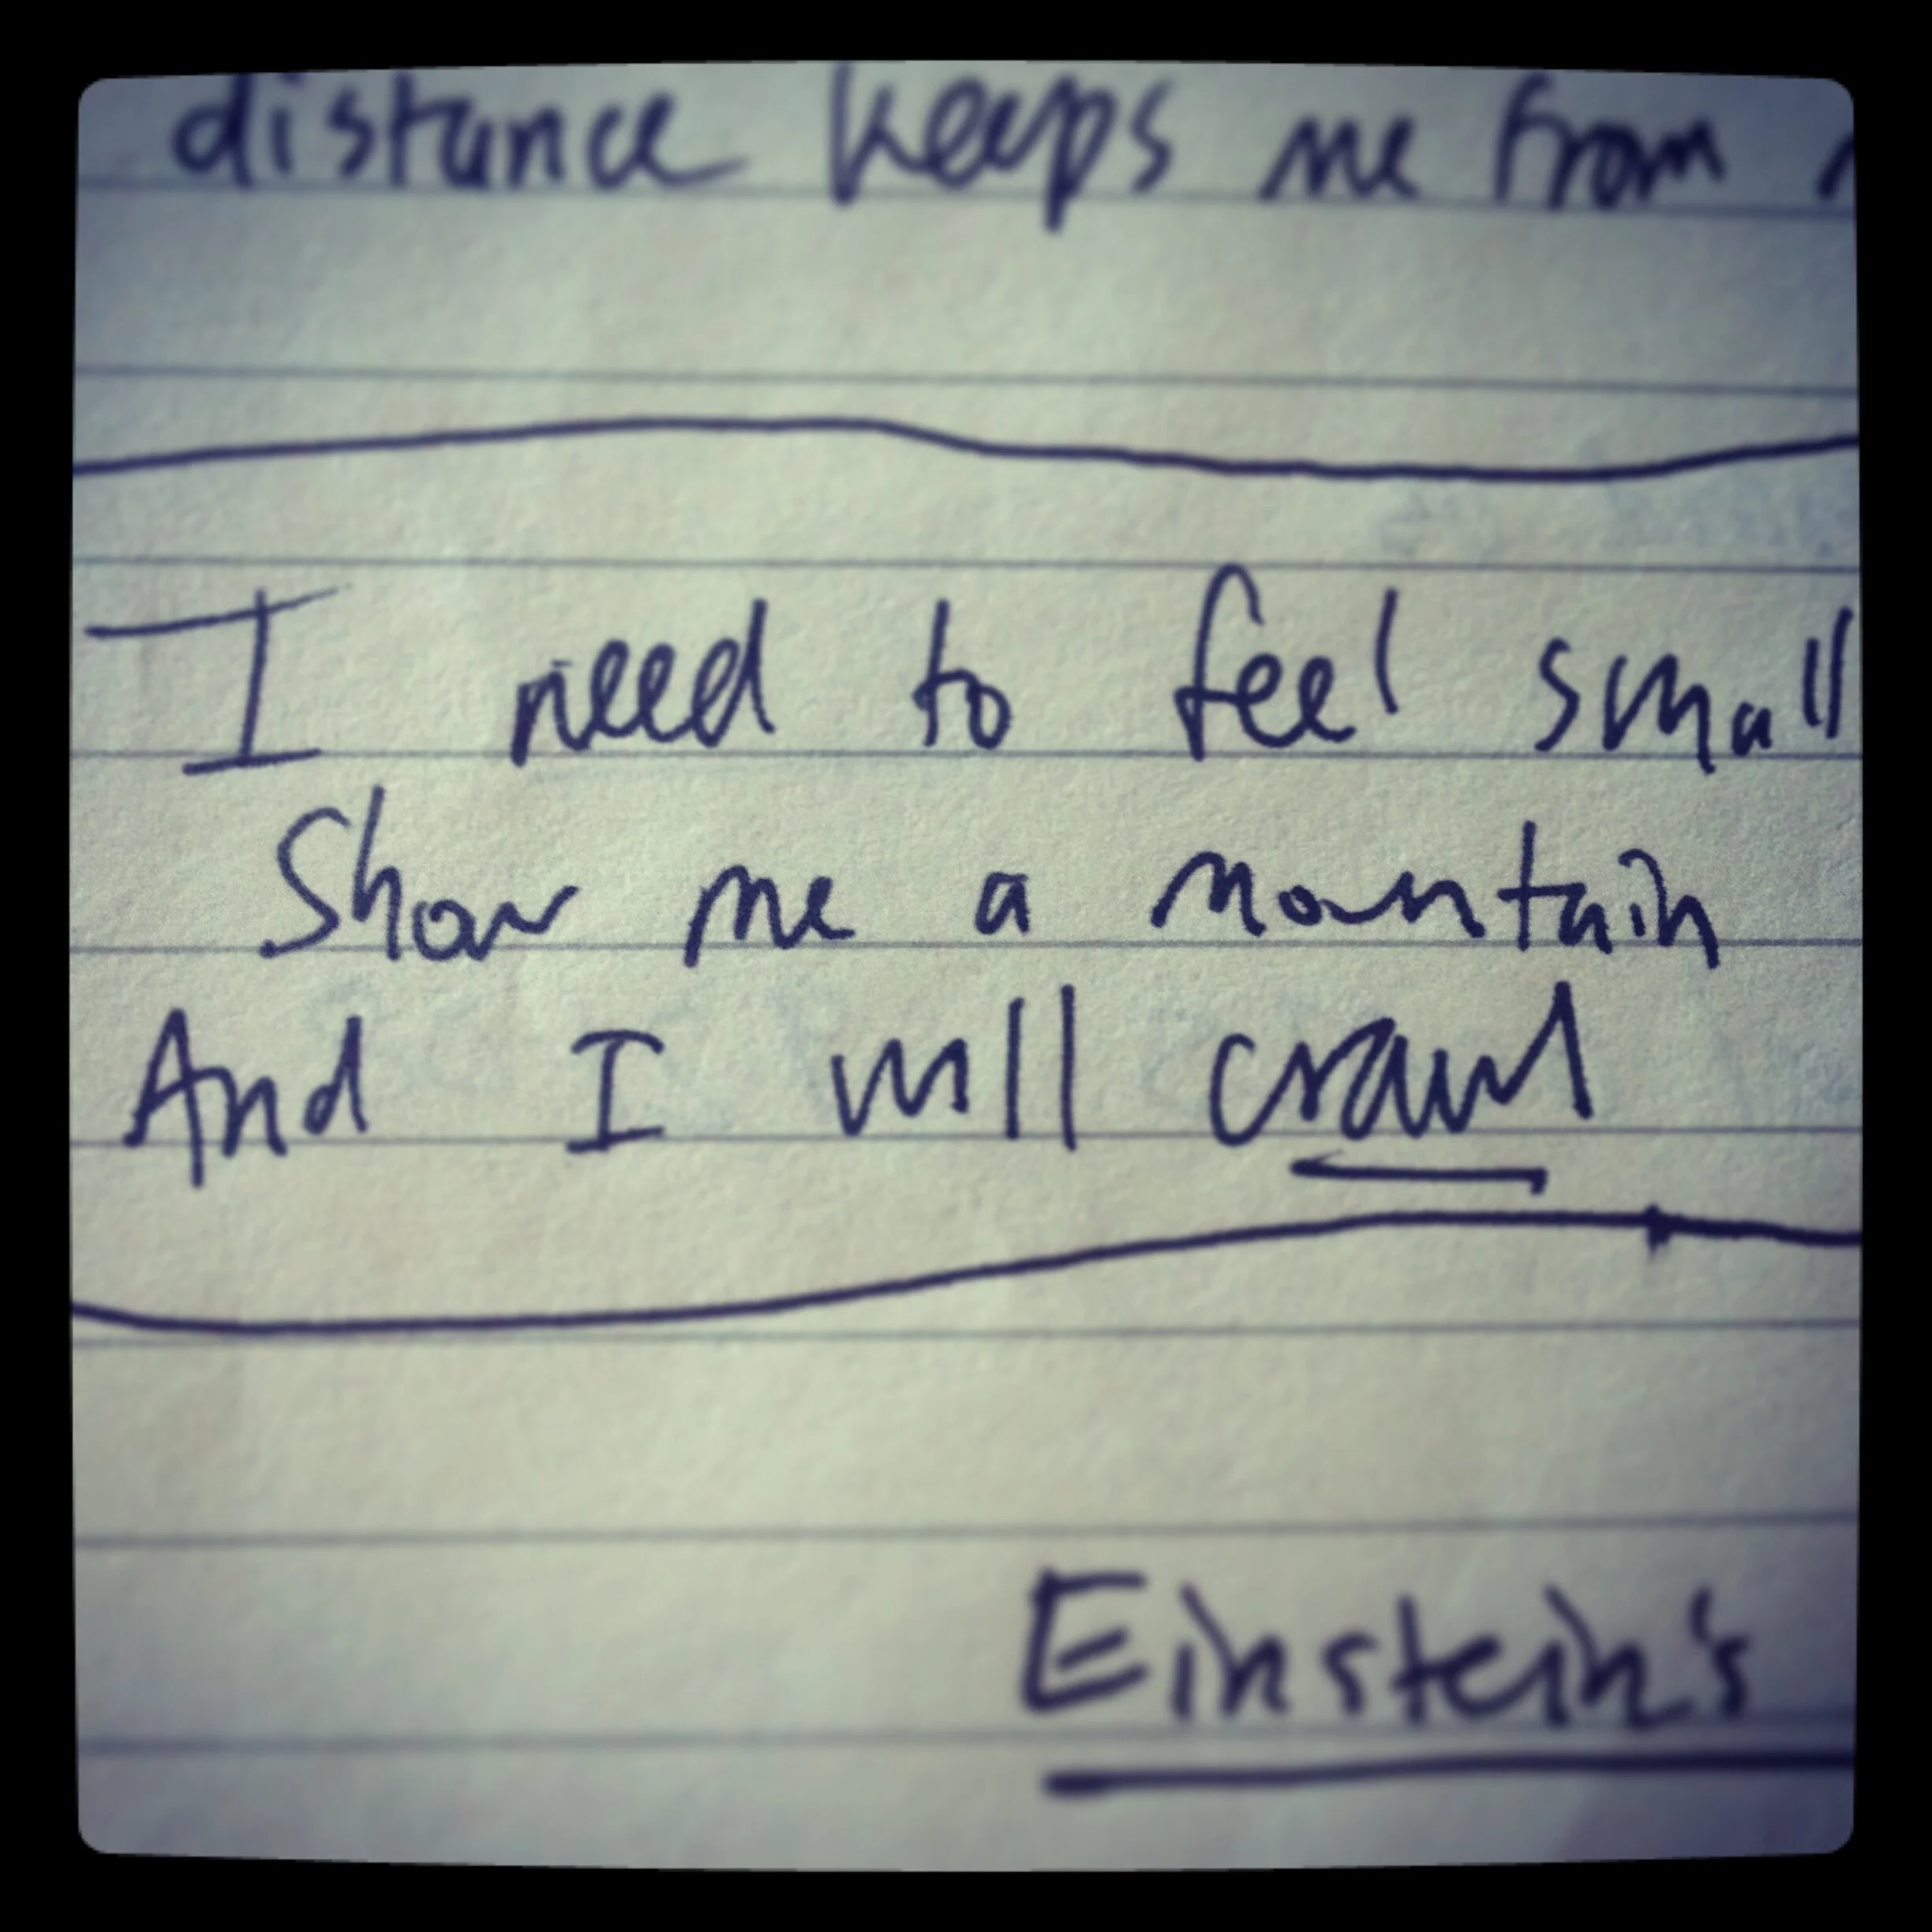 distance keeps me from
I need to feel small
Show me a mountain
And I will crawl
Einstein's